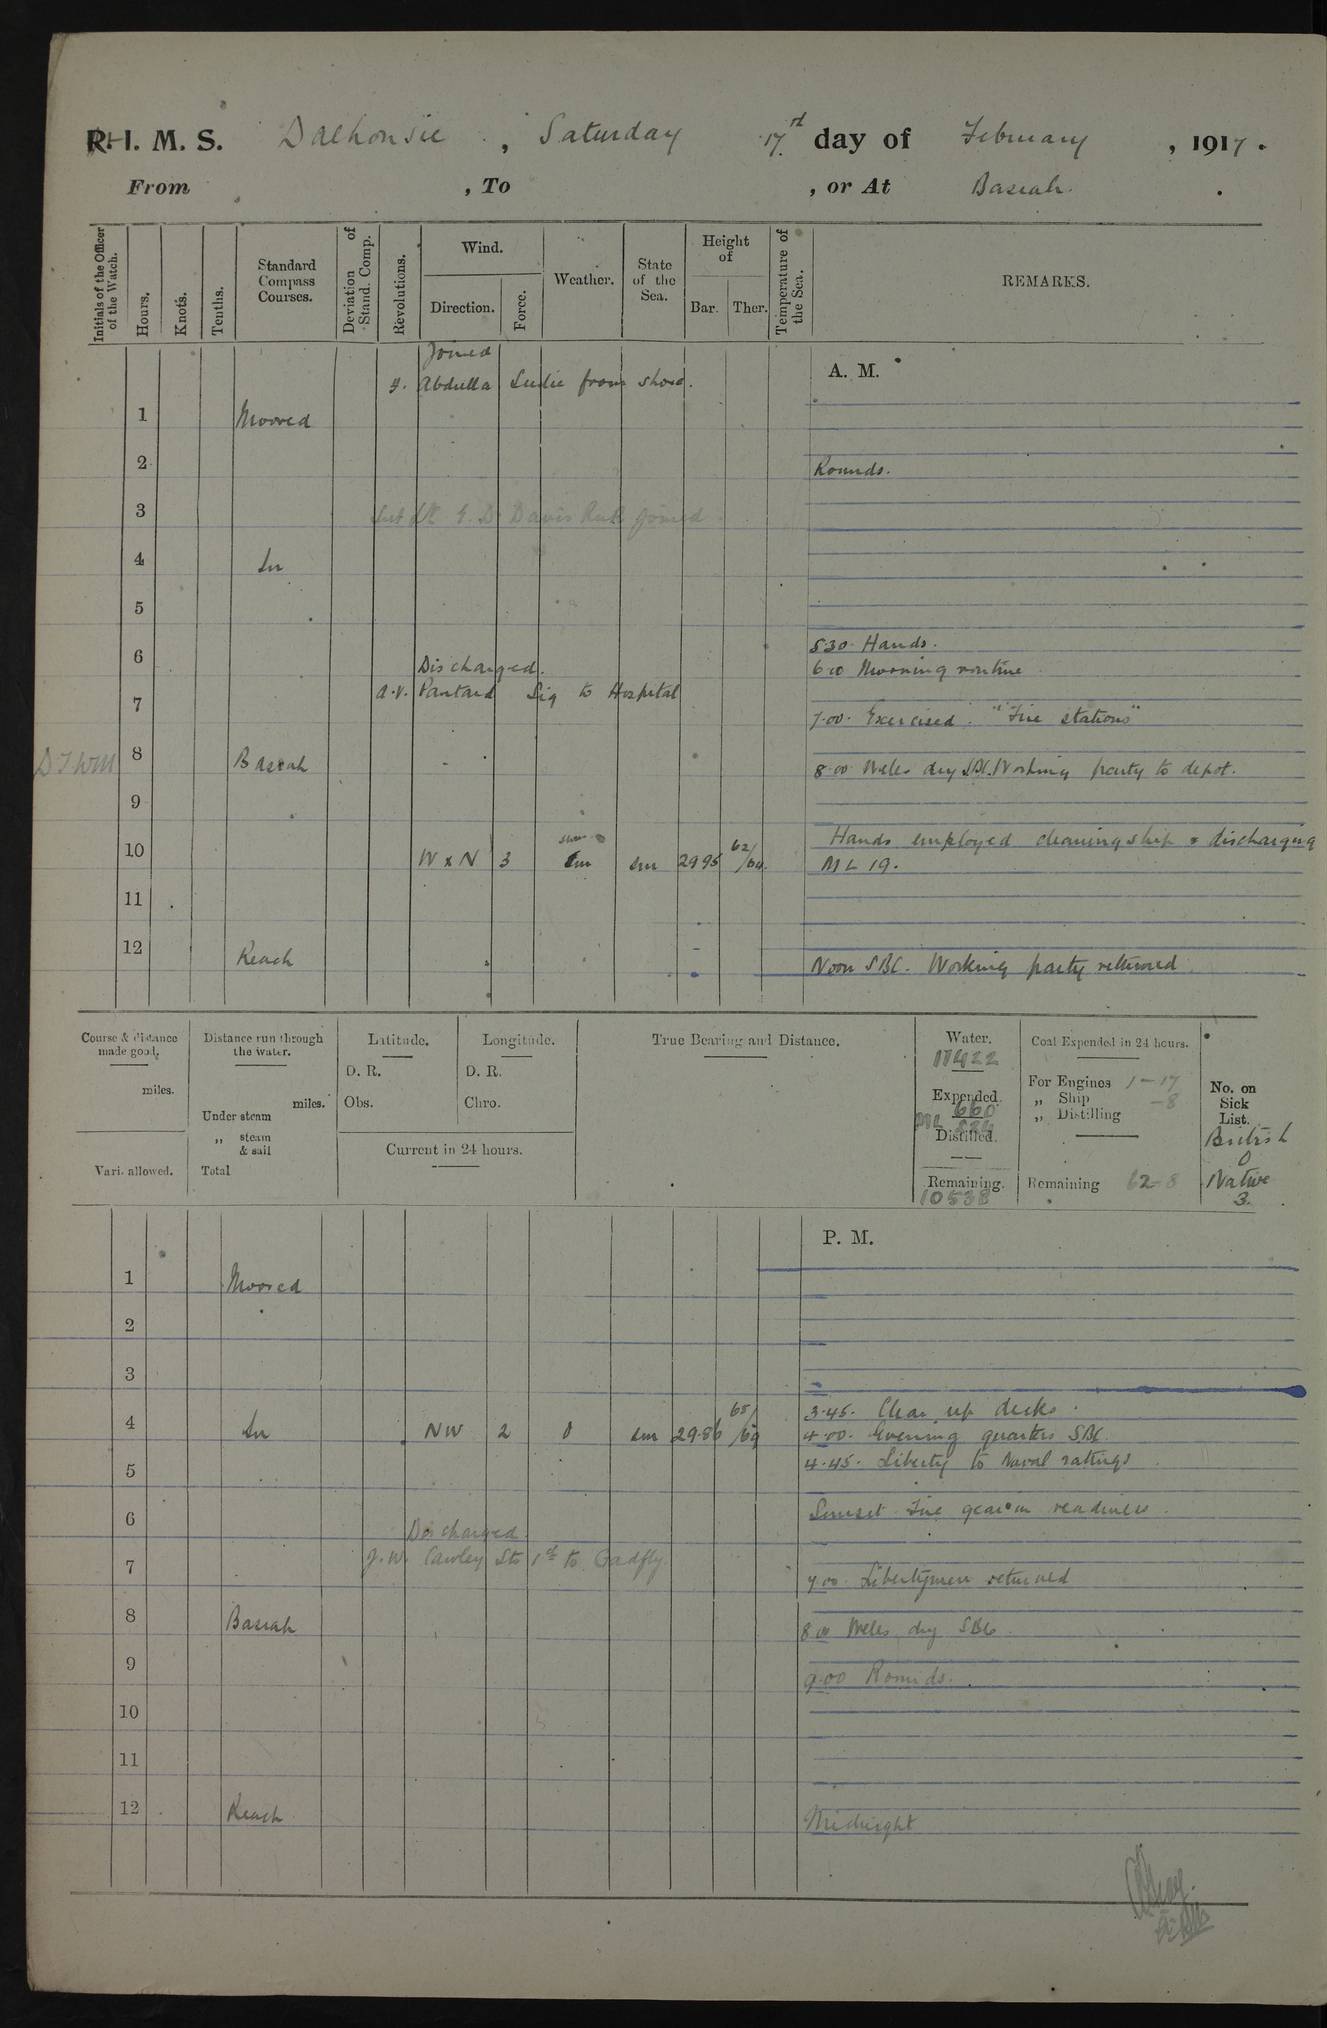 R. I. M. S. Dalhousie, Saturday 17th day of February, 1917.
From , To , or At Basrah.
Initials of the Officer of the Watch.
Hours.
Knots.
Tenths.
Standard Compass Courses.
Deviation of Stand. Comp.
Revolutions.
Wind.
Direction.
Force.
Weather.
State of the Sea.
Height of
Bar.
Ther.
Temperature of the Sea.
REMARKS.
Joined
A. M.
Abdulla from shore.
1 Moored
2 Rounds.
3 Davis joined
4 In
5
5.30 Hands.
6 Discharged. 6.00 Morning routine
Sig to Hospital
7 7.00. Exercised "Fire stations"
8 Basrah 8.00 Weles dry SBC. Working party to depot.
9
Hands employed cleaning ship & discharging
10 W x N 3 sm 29 95 62/64. ML 19.
11
12 Reach Noon SBC. Working party returned
Course & distance made good.
miles.
Vari. allowed.
Distance run through the water.
miles.
Under steam
„ steam & sail
Total
Latitude.
D. R.
Obs.
Longitude.
D. R.
Chro.
Current in 24 hours.
True Bearing and Distance.
Water.
11422
Expended.
660
Distilled.
Remaining.
10538
Coal Expended in 24 hours.
For Engines 1-17
„ Ship -8
„ Distilling
Remaining 62-8
No. on Sick List.
British
0
Native
3.
P. M.
1 Moored
2
3
3.45. Clear up decks.
4 In NW 2 0 sm 29.86 65/69 4.00. Evening quarters SBC.
4.45. Liberty to Naval ratings
5
Sunset Fire gear in readiness.
6 Discharged.
J. W. Cawley Sto 1st to Gadfly.
7 7.00 Libertymen returned
8 Basrah 8.00 Weles dry SBC
9 9.00 Rounds.
10
11
12 Reach Midnight